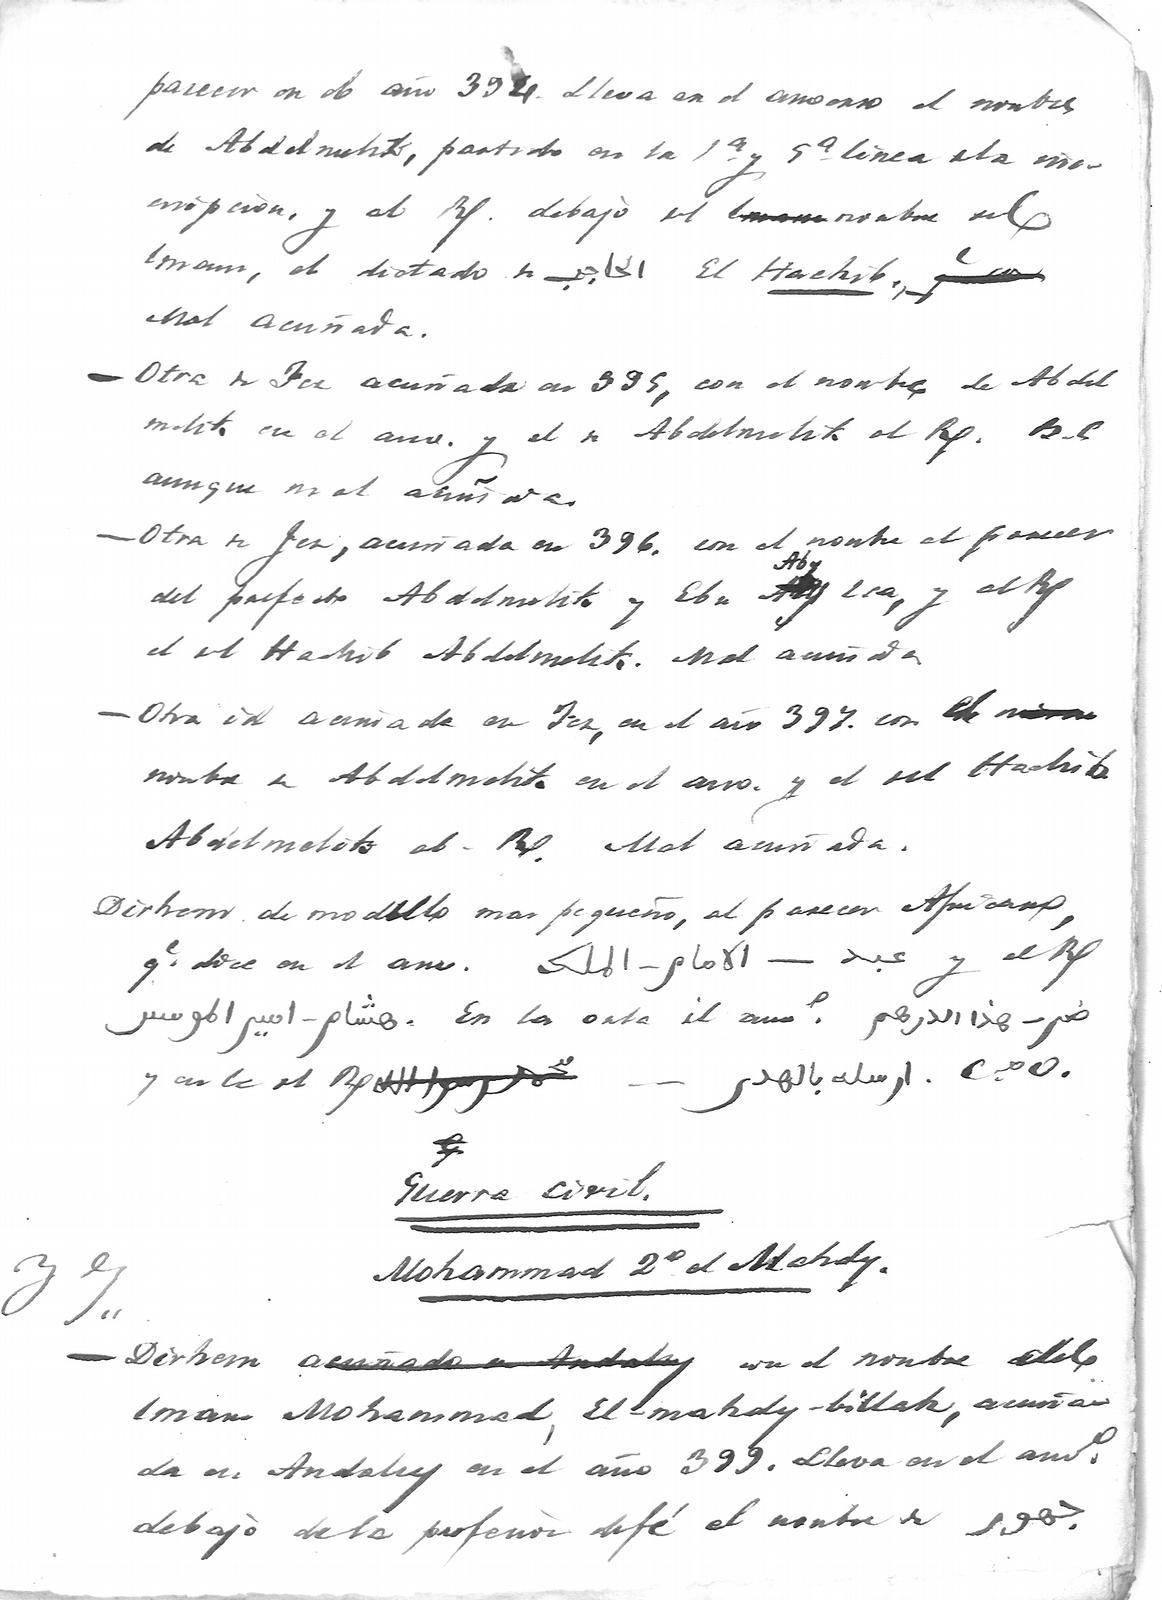 parecer en el año 394. Lleva en el anverso el nombre
de Abdelmelik, partido en la 1ª y 5ª linea de la ins-
cripcion, y el Rf. debajo del nombre del
Imam, el dictado de الحاجب El Hachib.
Mal acuñada.
— Otra de Fez acuñada en 395, con el nombre de Abdel
melik en el anv. y el de Abdelmelik el Rf. B. C
aunque mal acuñada.
— Otra de Fez, acuñada en 396. con el nombre al parecer
del prefecto Abdelmelik y Ebn Aby Isa, y el Rf
el del Hachib Abdelmelik. Mal acuñada
— Otra id acuñada en Fez, en el año 397. con
nombre de Abdelmelik en el anv. y el del Hachib
Abdelmelik al Rf. Mal acuñada.
Dirhem de modulo mas pequeño, al parecer Africano,
qe. dice en el anv. الامام - الملك — عبد y el Rf
هشام - امير المومنين. En la orla del anvo. ضر - هذا الدرهم
y en la del Rf — ارسله بالهدى.
Guerra civil.
Mohammad 2º el Mahdy.
— Dirhem acuñado en Andalus con el nombre del
Imam Mohammad, El-mahdy-billah, acuña-
da en Andalus en el año 399. Lleva en el anvo.
debajo de la profesion de fé el nombre de